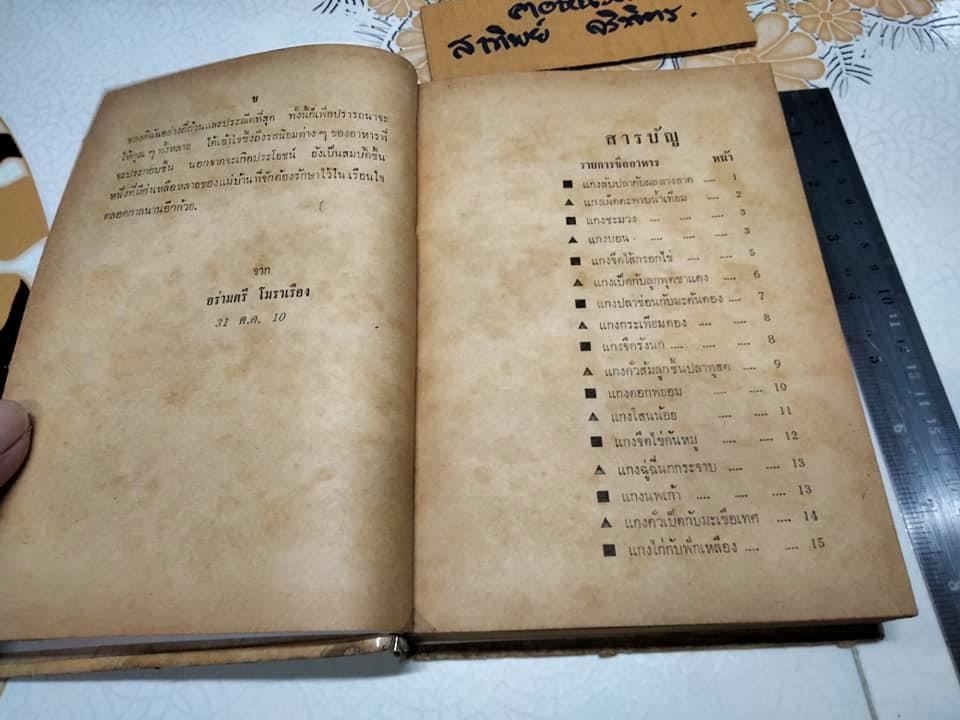 สาทิพย์
ข
ของดิฉันอย่างถี่ถ้วนและประณีตที่สุด ทั้งนี้ก็เพื่อปรารถนาจะ
ให้คุณ ๆ ทั้งหลาย ได้เข้าใจซึ้งถึงรสนิยมต่าง ๆ ของอาหารที่
จะประกอบขึ้น นอกจากจะเกิดประโยชน์ ยังเป็นสมบัติชิ้น
หนึ่งที่มีค่าเหลือหลายของแม่บ้านที่จักต้องรักษาไว้ใน เรือนใจ
ตลอดกาลนานอีกด้วย.
จาก
อร่ามศรี โมราเรือง
31 ต.ค. 10
สารบัญ
รายการชื่ออาหาร หน้า
■ แกงตับปลากับผลลางสาด .... 1
▲ แกงเผ็ดตะพาบน้ำเทียม .... 2
■ แกงชะมวง .... .... .... 3
▲ แกงบอน .... .... .... 3
■ แกงจืดไส้กรอกไข่ .... .... 5
▲ แกงเป็ดกับลูกพุดซาแดง .... 6
■ แกงปลาช่อนกับมะดันดอง .... 7
▲ แกงกระเทียมดอง .... .... 8
■ แกงจืดรังนก .... .... .... 8
▲ แกงคั่วส้มลูกชิ้นปลาทูสด .... 9
■ แกงดอกพยอม .... .... 10
▲ แกงโสนน้อย .... .... 11
■ แกงจืดไข่ตันหมู .... .... 12
▲ แกงฉู่ฉี่นกกระจาบ .... .... 13
■ แกงนพเก้า .... .... .... 13
▲ แกงคั่วเป็ดกับมะเขือเทศ .... 14
■ แกงไก่กับฟักเหลือง .... .... 15